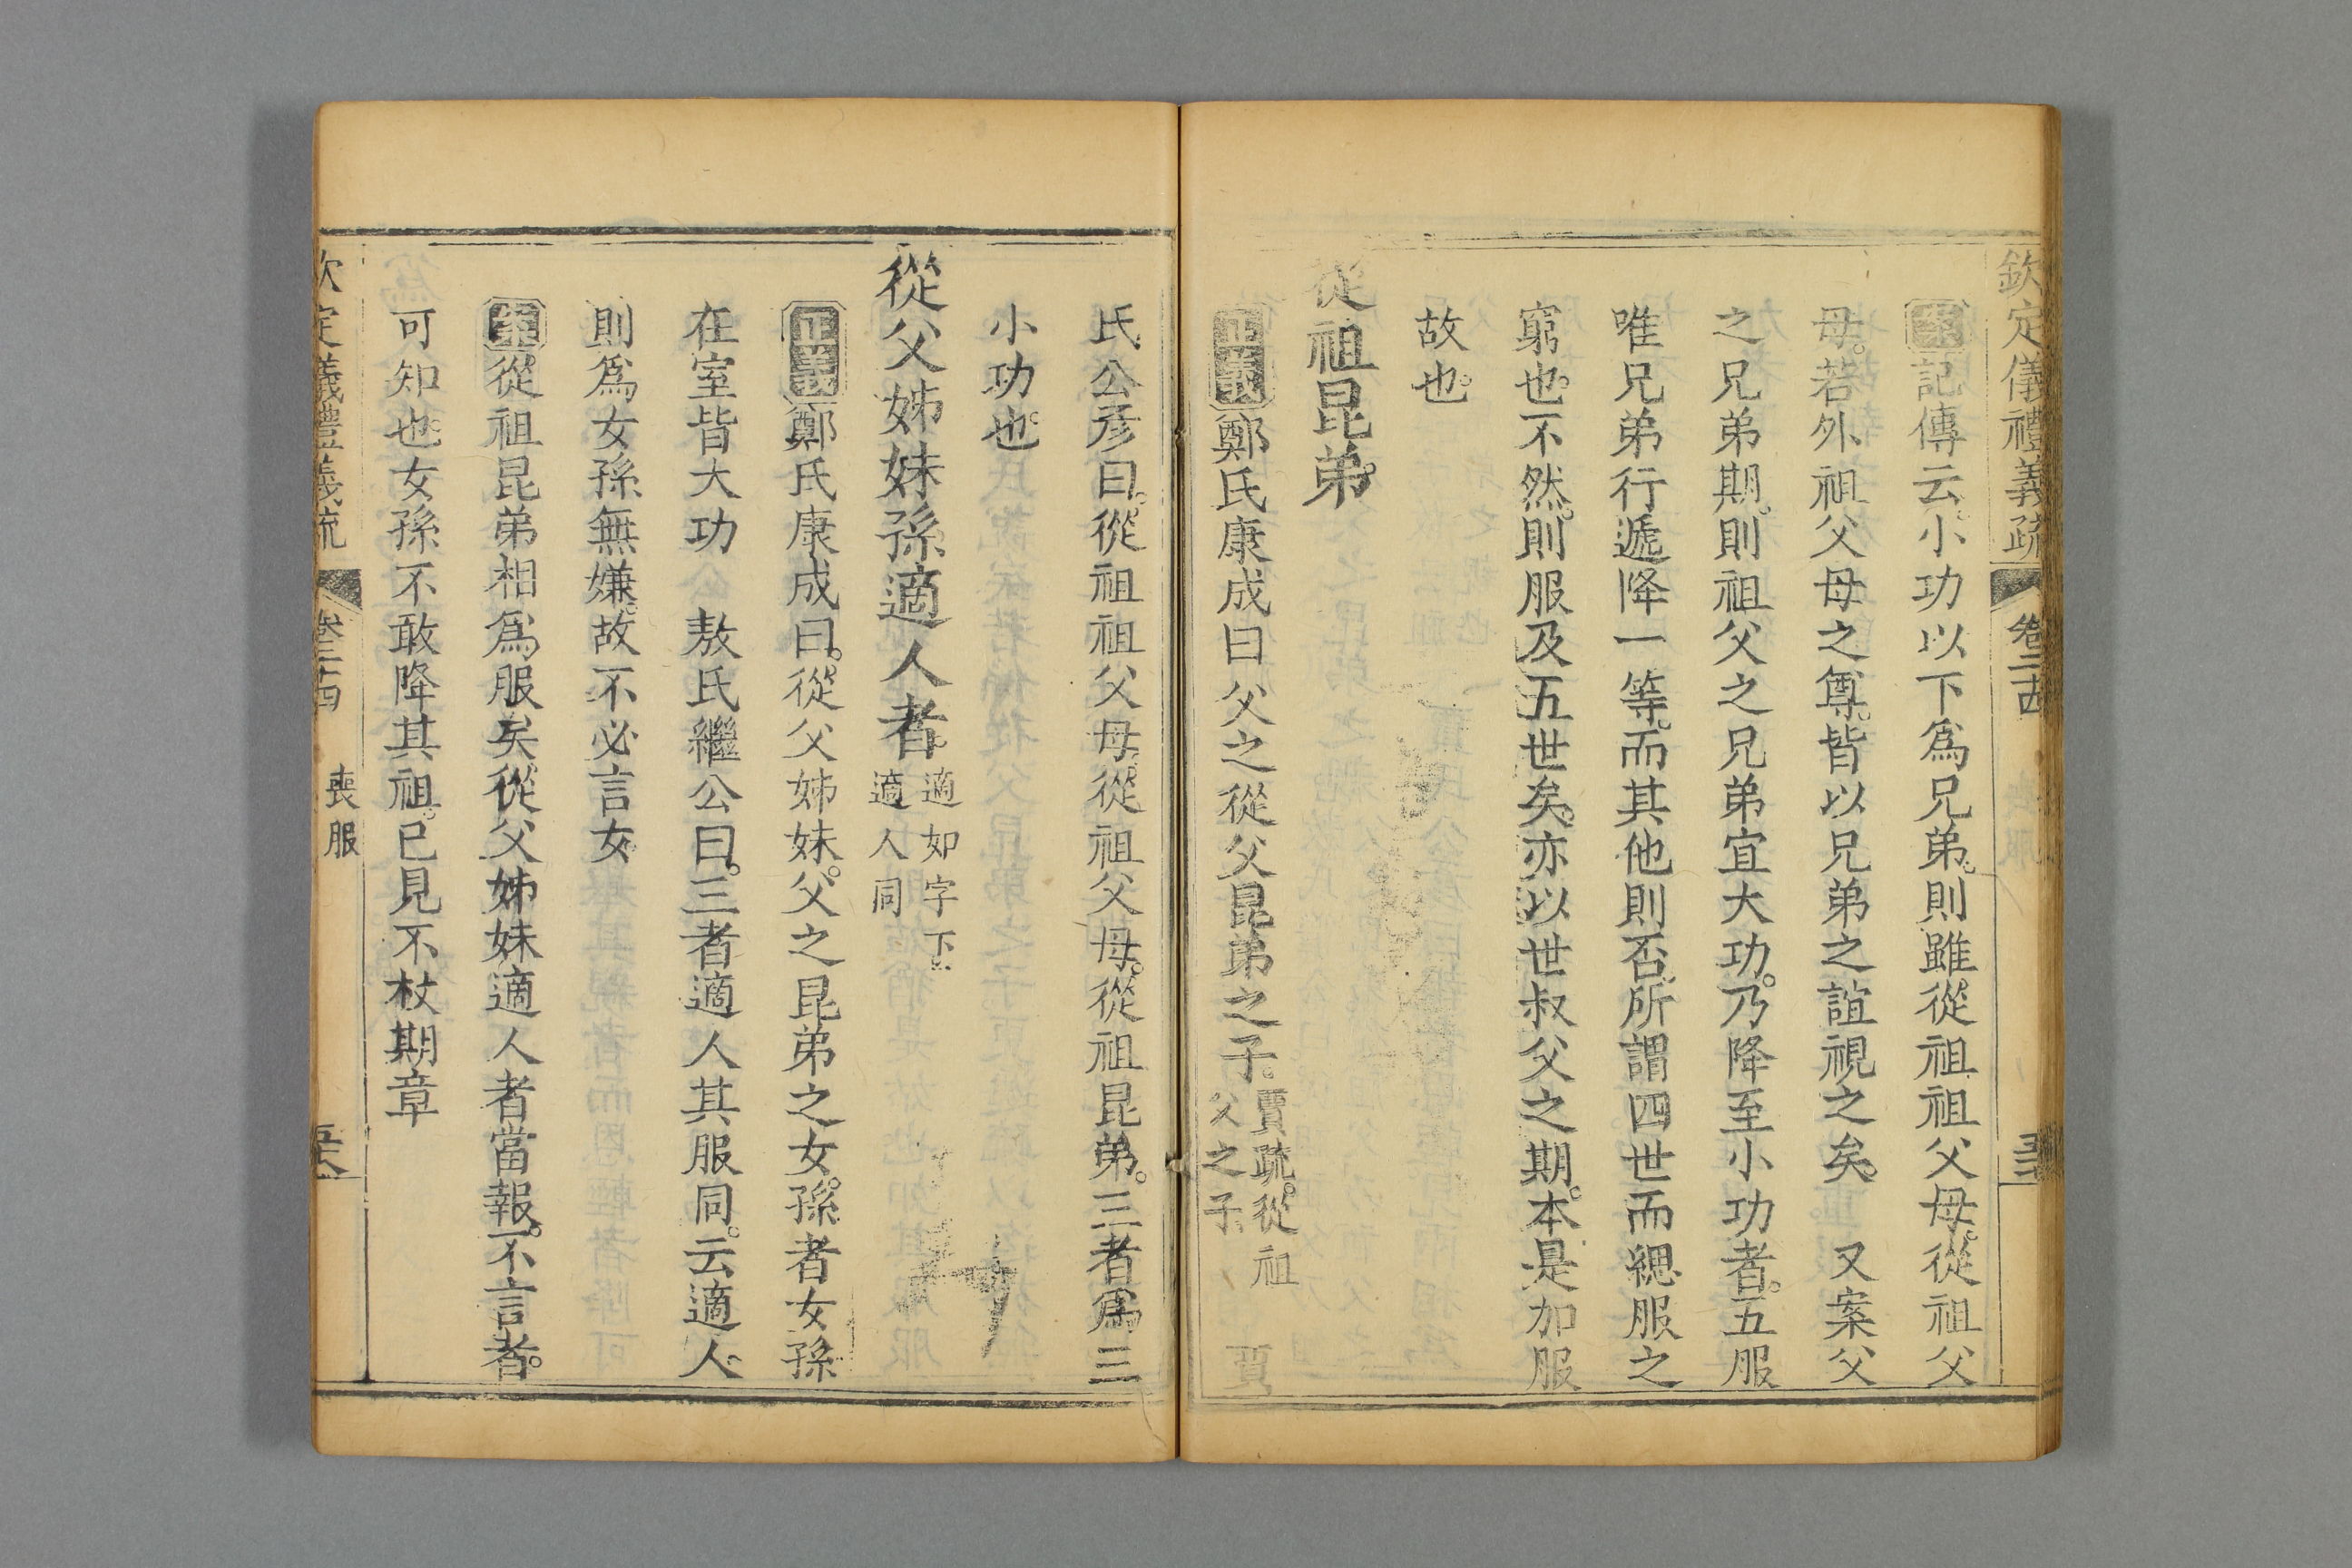 欽定儀禮義疏 卷二十四
案記傳云。小功以下爲兄弟。則雖從祖祖父母。從祖父
母。若外祖父母之尊。皆以兄弟之誼視之矣。 又案父
之兄弟期。則祖父之兄弟宜大功。乃降至小功者。五服
唯兄弟行遞降一等。而其他則否。所謂四世而緦服之
窮也。不然。則服及五世矣。亦以世叔父之期。本是加服
故也。
從祖昆弟。
正義鄭氏康成曰父之從父昆弟之子。賈疏。從祖父之子。 賈
氏公彥曰。從祖祖父母。從祖父母。從祖昆弟。三者爲三
小功也。
從父姊妹孫適人者。適如字下適人同
正義鄭氏康成曰。從父姊妹。父之昆弟之女。孫者女孫
在室皆大功 敖氏繼公曰。三者適人其服同。云適人
則爲女孫無嫌。故不必言女
案從祖昆弟相爲服矣。從父姊妹適人者當報。不言者。
可知也。女孫不敢降其祖。已見不杖期章
欽定儀禮義疏 卷二十四 喪服